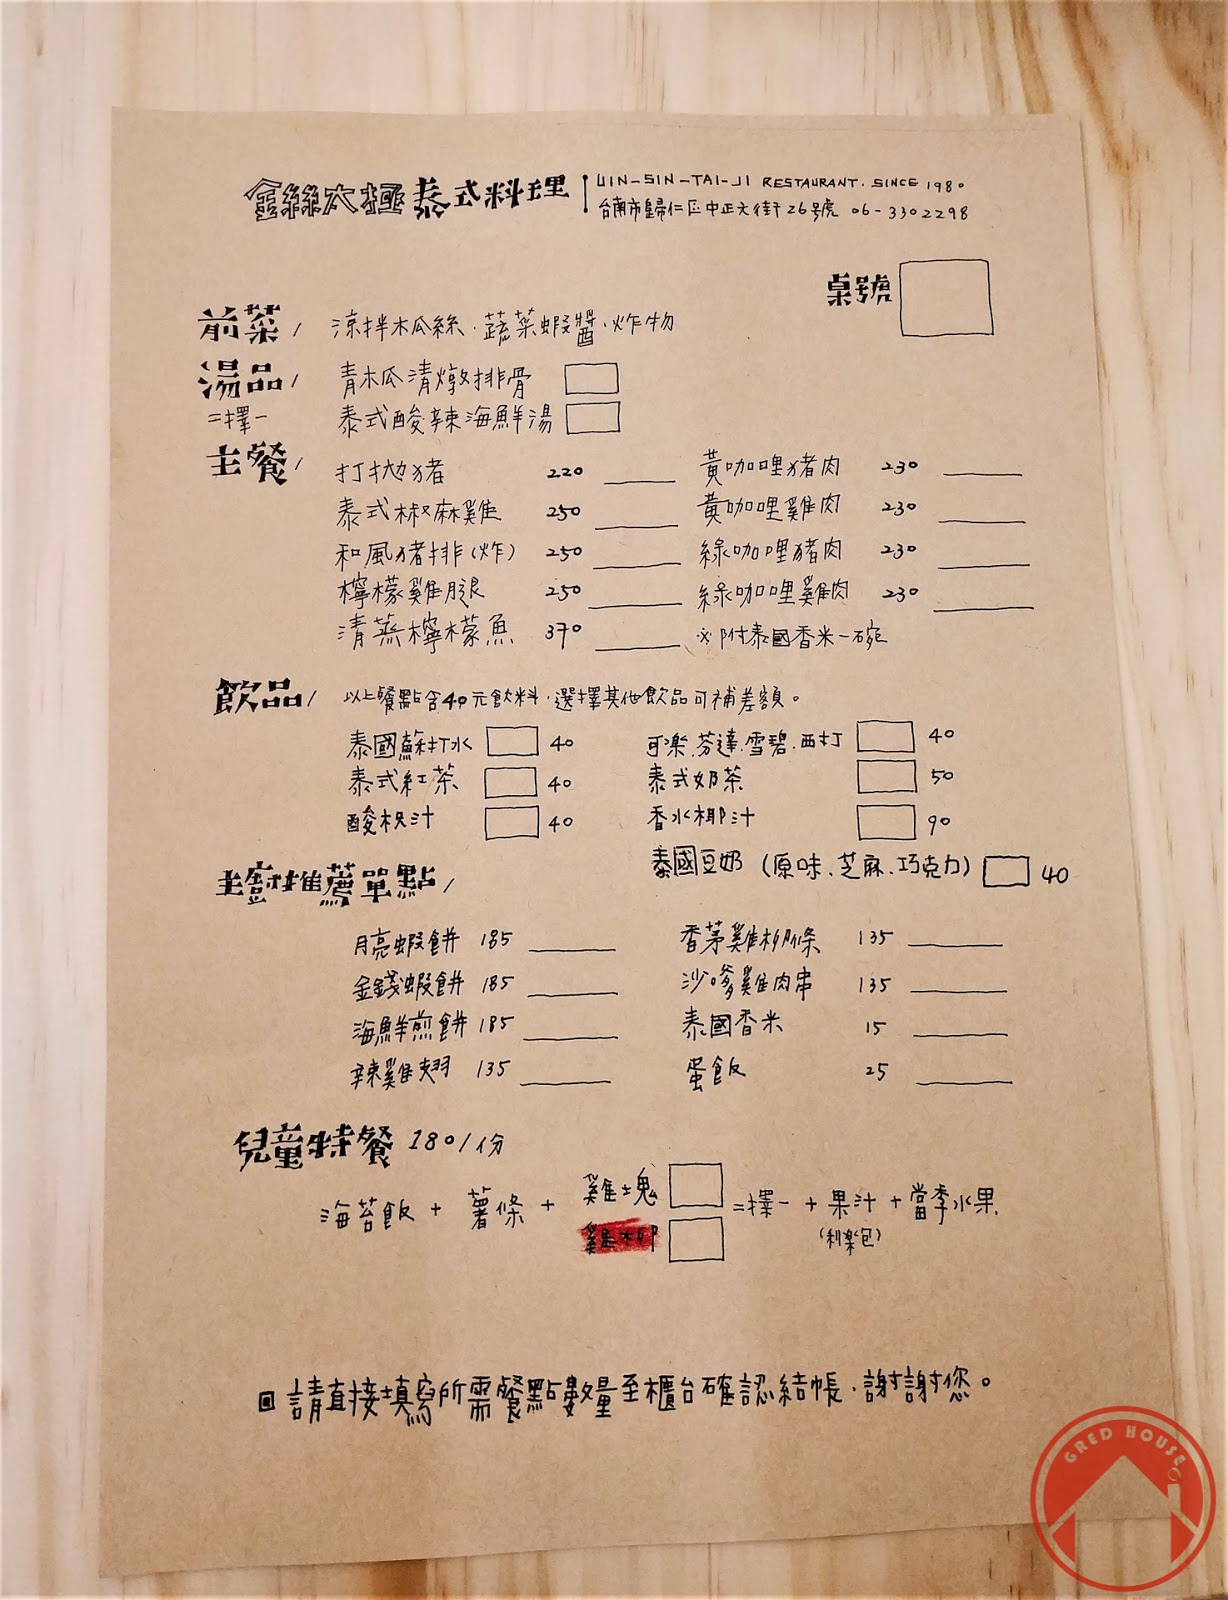 金絲太極泰式料理 UIN-SIN-TAI-JI RESTAURANT. SINCE 1980
台南市歸仁區中正大街26號 06-3302298
桌號
前菜/ 涼拌木瓜絲.蔬菜蝦醬.炸物
湯品/ 青木瓜清燉排骨
二擇一 泰式酸辣海鮮湯
主餐/ 打拋猪 220 黃咖哩猪肉 230
泰式椒麻雞 250 黃咖哩雞肉 230
和風猪排(炸) 250 綠咖哩猪肉 230
檸檬雞腿 250 綠咖哩雞肉 230
清蒸檸檬魚 370 ※附泰國香米一碗
飲品/ 以上餐點含40元飲料.選擇其他飲品可補差額。
泰國蘇打水 40 可樂.芬達.雪碧.西打 40
泰式紅茶 40 泰式奶茶 50
酸枳汁 40 香水椰汁 90
泰國豆奶(原味.芝麻.巧克力) 40
主廚推薦單點/
月亮蝦餅 185 香茅雞柳條 135
金錢蝦餅 185 沙嗲雞肉串 135
海鮮煎餅 185 泰國香米 15
辣雞翅 135 蛋飯 25
兒童特餐 180/份
海苔飯 + 薯條 + 雞塊 二擇一 + 果汁 + 當季水果
雞柳 (利樂包)
回 請直接填寫所需餐點數量至櫃台確認結帳.謝謝您。
GRED HOUSE